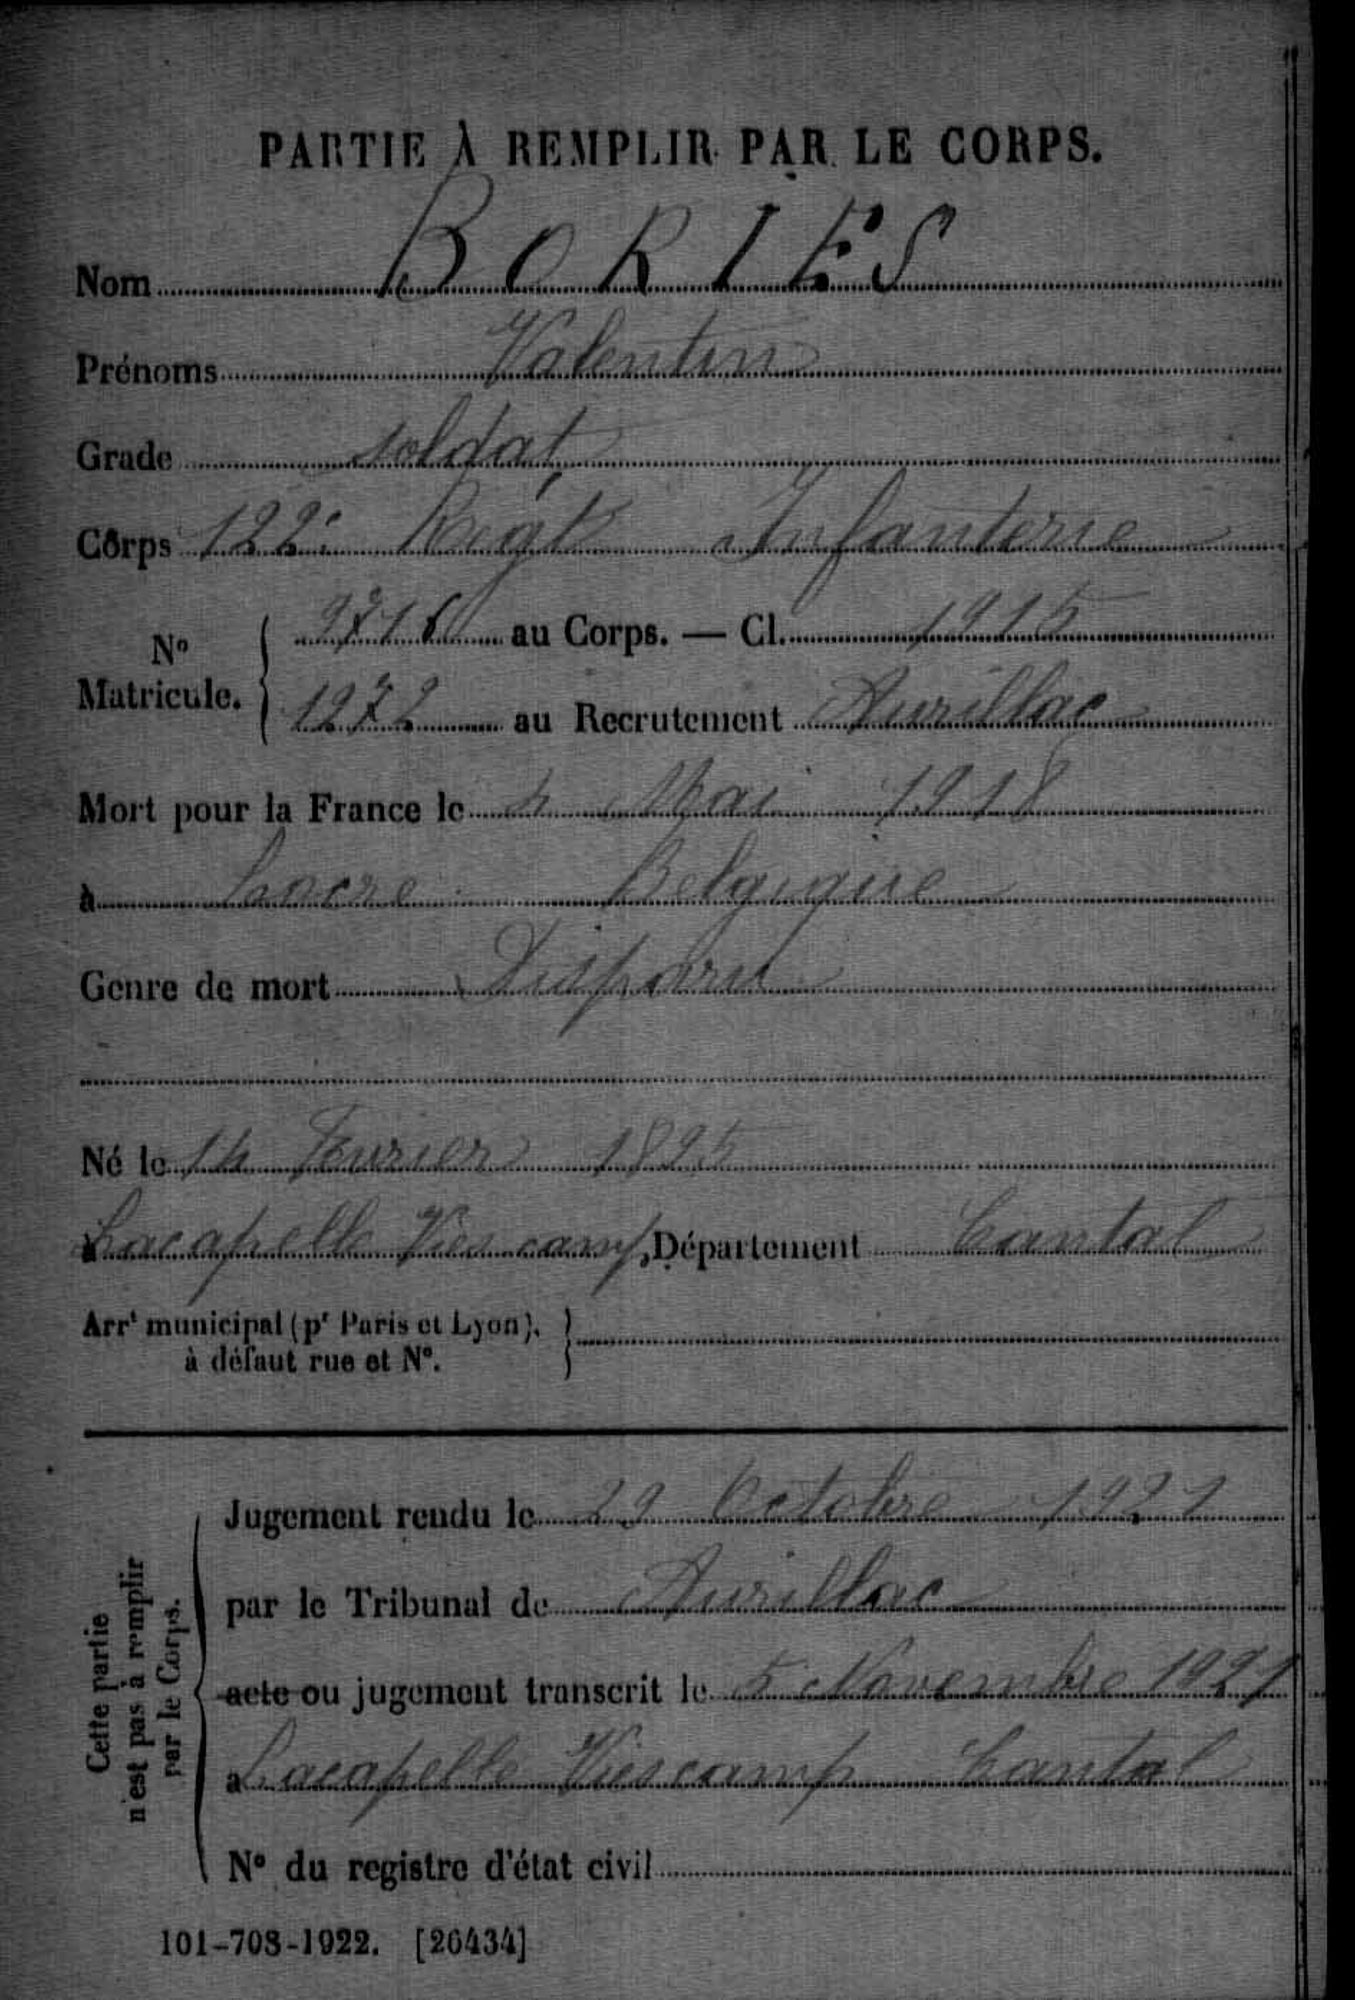 PARTIE À REMPLIR PAR LE CORPS.
Nom BORIES
Prénoms Valentin
Grade soldat
Corps 122e Régt Infanterie
No Matricule. { 9716 au Corps. — Cl. 1915
1272 au Recrutement Aurillac
Mort pour la France le 4 Mai 1918
à Locre Belgique
Genre de mort Disparu
Né le 14 Février 1895
à Lacapelle Viescamp Département Cantal
Arrt municipal (pr Paris et Lyon),
à défaut rue et N°.
Cette partie
n'est pas à remplir
par le Corps.
Jugement rendu le 29 Octobre 1921
par le Tribunal de Aurillac
acte ou jugement transcrit le 5 Novembre 1921
a Lacapelle Viescamp Cantal
N° du registre d'état civil
101-708-1922. [26434]